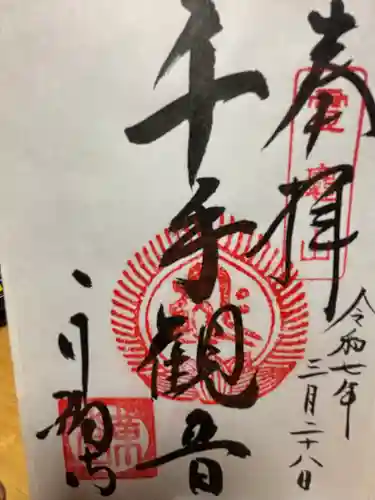 奉拝
令和七年
三月二十八日
千手観音